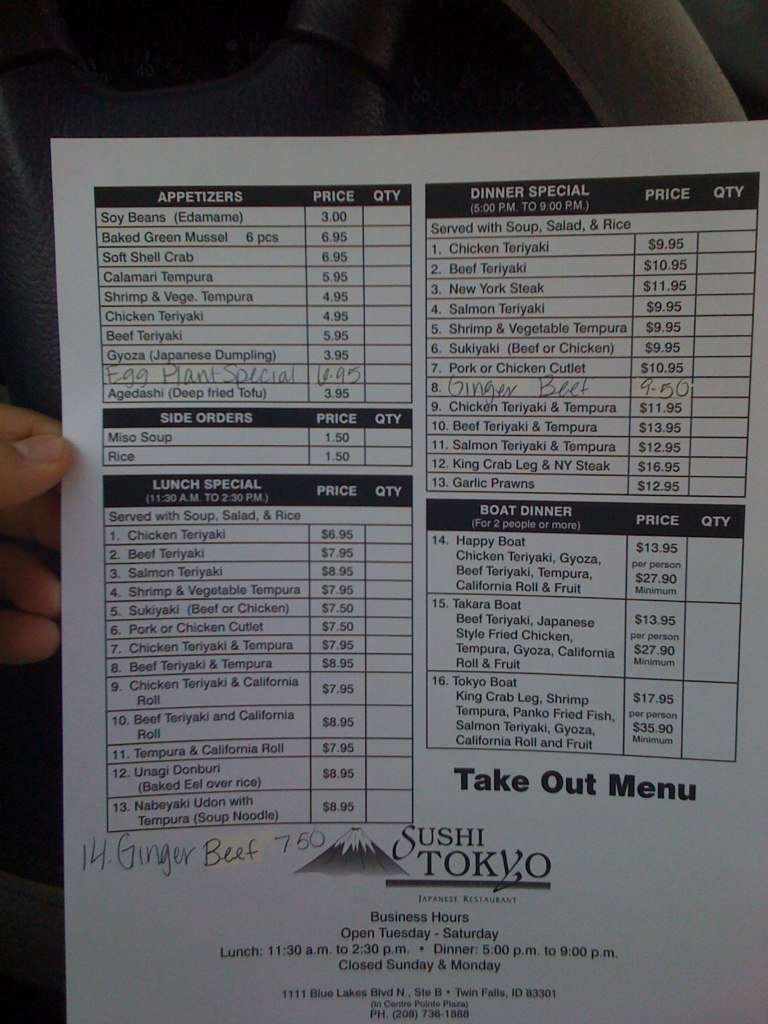 APPETIZERS PRICE QTY
Soy Beans (Edamame) 3.00
Baked Green Mussel 6 pcs 6.95
Soft Shell Crab 6.95
Calamari Tempura 5.95
Shrimp & Vege. Tempura 4.95
Chicken Teriyaki 4.95
Beef Teriyaki 5.95
Gyoza (Japanese Dumpling) 3.95
Egg Plant Special 6.95
Agedashi (Deep fried Tofu) 3.95
SIDE ORDERS PRICE QTY
Miso Soup 1.50
Rice 1.50
LUNCH SPECIAL PRICE QTY
(11:30 A.M. TO 2:30 P.M.)
Served with Soup, Salad, & Rice
1. Chicken Teriyaki $6.95
2. Beef Teriyaki $7.95
3. Salmon Teriyaki $8.95
4. Shrimp & Vegetable Tempura $7.95
5. Sukiyaki (Beef or Chicken) $7.50
6. Pork or Chicken Cutlet $7.50
7. Chicken Teriyaki & Tempura $7.95
8. Beef Teriyaki & Tempura $8.95
9. Chicken Teriyaki & California
Roll $7.95
10. Beef Teriyaki and California
Roll $8.95
11. Tempura & California Roll $7.95
12. Unagi Donburi
(Baked Eel over rice) $8.95
13. Nabeyaki Udon with
Tempura (Soup Noodle) $8.95
14. Ginger Beef 7.50
DINNER SPECIAL PRICE QTY
(5:00 P.M. TO 9:00 P.M.)
Served with Soup, Salad, & Rice
1. Chicken Teriyaki $9.95
2. Beef Teriyaki $10.95
3. New York Steak $11.95
4. Salmon Teriyaki $9.95
5. Shrimp & Vegetable Tempura $9.95
6. Sukiyaki (Beef or Chicken) $9.95
7. Pork or Chicken Cutlet $10.95
8. Ginger Beef 9.50
9. Chicken Teriyaki & Tempura $11.95
10. Beef Teriyaki & Tempura $13.95
11. Salmon Teriyaki & Tempura $12.95
12. King Crab Leg & NY Steak $16.95
13. Garlic Prawns $12.95
BOAT DINNER PRICE QTY
(For 2 people or more)
14. Happy Boat $13.95
Chicken Teriyaki, Gyoza, per person
Beef Teriyaki, Tempura, $27.90
California Roll & Fruit Minimum
15. Takara Boat $13.95
Beef Teriyaki, Japanese
Style Fried Chicken, per person
Tempura, Gyoza, California $27.90
Roll & Fruit Minimum
16. Tokyo Boat $17.95
King Crab Leg, Shrimp
Tempura, Panko Fried Fish, per person
Salmon Teriyaki, Gyoza, $35.90
California Roll and Fruit Minimum
Take Out Menu
SUSHI
TOKYO
JAPANESE RESTAURANT
Business Hours
Open Tuesday - Saturday
Lunch: 11:30 a.m. to 2:30 p.m. • Dinner: 5:00 p.m. to 9:00 p.m.
Closed Sunday & Monday
1111 Blue Lakes Blvd N., Ste B • Twin Falls, ID 83301
(in Centre Pointe Plaza)
PH. (208) 736-1888